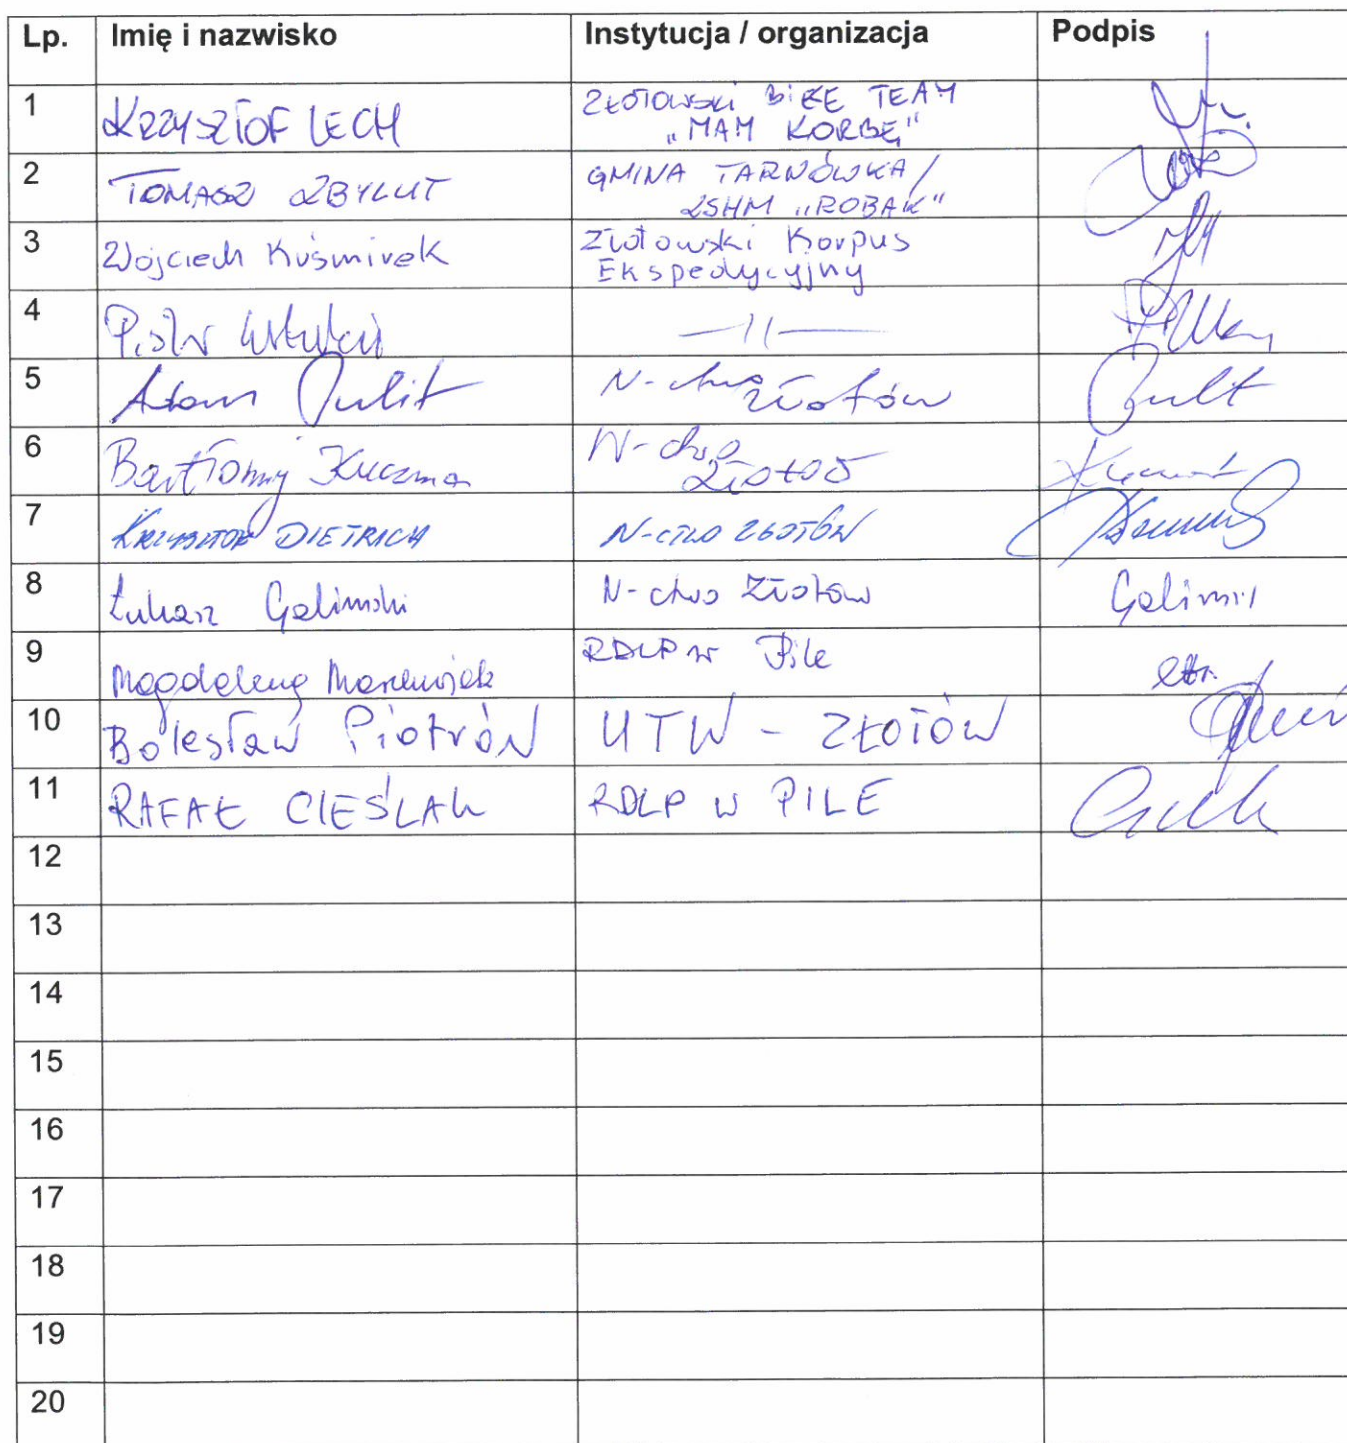 Lp. Imię i nazwisko Instytucja / organizacja Podpis
1 KRZYSZTOF LECH ZŁOTOWSKI BIKE TEAM
"MAM KORBĘ"
2 TOMASZ ZBYLUT GMINA TARNÓWKA /
ZSHM "ROBAK"
3 Wojciech Kuśmirek Złotowski Korpus
Ekspedycyjny
4 Piotr —11—
5 Adam Pulit N-ctwo Złotów
Pulit
6 Bartłomiej Kuczma N-ctwo
Złotów
7 KRZYSZTOF DIETRICH N-CTWO ZŁOTÓW
8 Łukasz Galimski N-ctwo Złotów Galimski
9 Magdalena RDLP w Pile
10 Bolesław Piotrów UTW - ZŁOTÓW
11 RAFAŁ CIEŚLAK RDLP W PILE
12
13
14
15
16
17
18
19
20